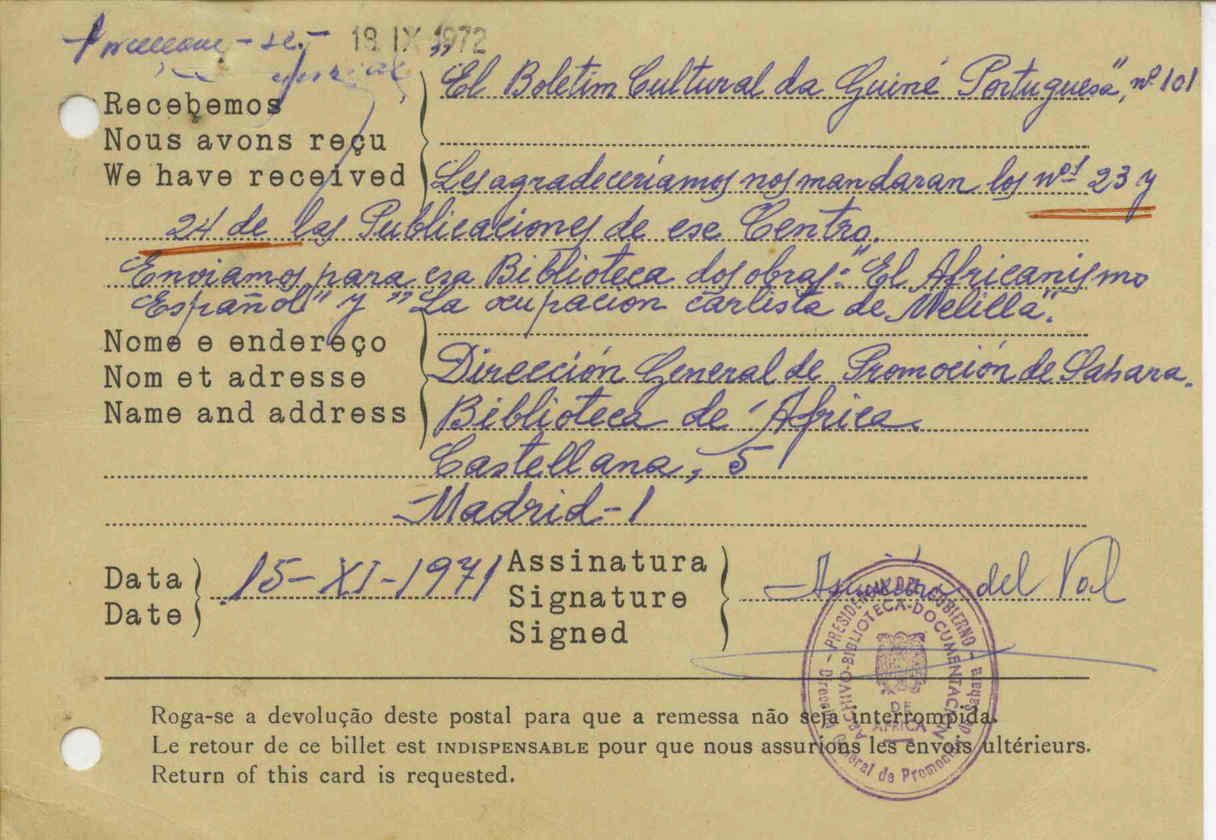 18 IX 1972
"El Boletim Cultural da Guiné Portuguesa", nº 101
Recebemos
Nous avons reçu
We have received
Les agradeceríamos nos mandaran los nºs 23 y
24 de las Publicaciones de ese Centro.
Enviamos para esa Biblioteca dos obras: "El Africanismo
Español" y "La ocupación carlista de Melilla".
Nome e endereço
Nom et adresse
Name and address
Dirección General de Promoción de Sahara.
Biblioteca de África.
Castellana, 5
Madrid-1
Data
Date
15-XI-1971
Assinatura
Signature
Signed
del Val
PRESIDENCIA DEL GOBIERNO
Dirección General de Promoción de Sahara
ARCHIVO-BIBLIOTECA-DOCUMENTACIÓN
DE
AFRICA
Roga-se a devolução deste postal para que a remessa não seja interrompida.
Le retour de ce billet est INDISPENSABLE pour que nous assurions les envois ultérieurs.
Return of this card is requested.